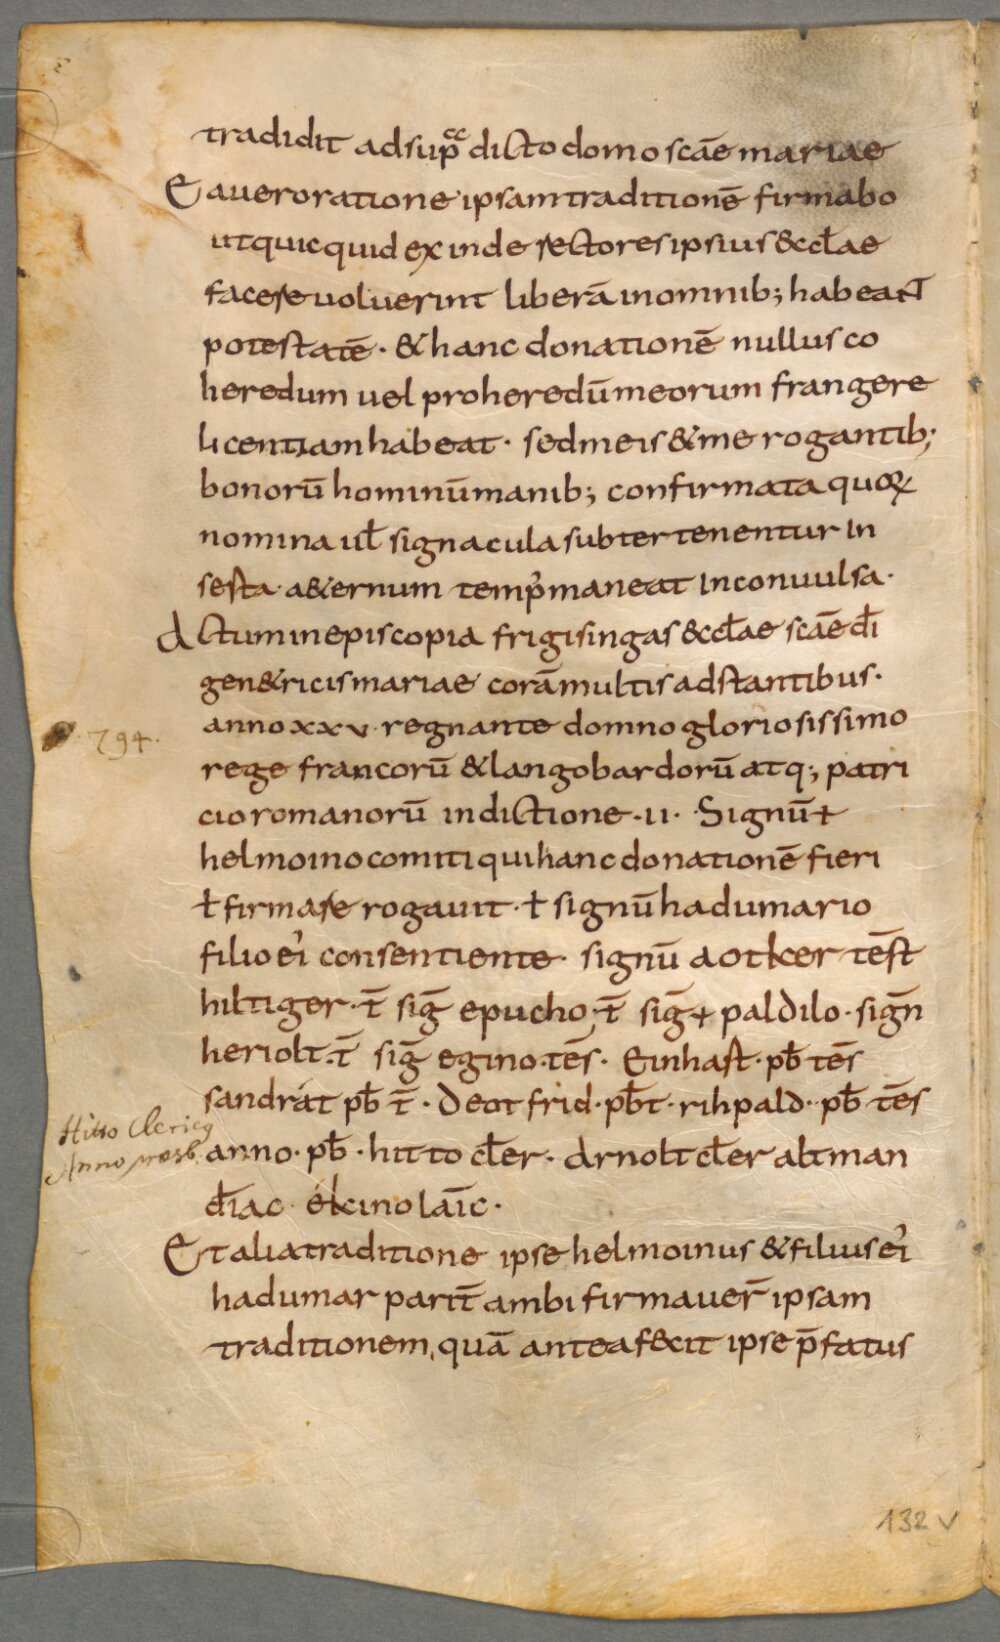 tradidit adsup̄ dicto domo scāe mariae
Ea uero ratione ipsam traditionē firmabo
ut quicquid exinde rectores ipsius &ccƚae
facere uoluerint liberā in omnib; habeant
potestatē · & hanc donationē nullus co
heredum uel proheredū meorum frangere
licentiam habeat · sed meis & me rogantib;
bonorū hominū manib; confirmata quoꝝ
nomina uƚ signacula subter tenentur in
sesta · a&ernum temp̓ maneat inconuulsa ·
Actum in episcopia frigisingas &ccƚae scāe dī
gen&ricis mariae corā multis adstantibus ·
anno xxv regnante domno gloriosissimo
794 ·
rege francorū & langobardorū atq; patri
cio romanorū indictione · ii · Signū †
helmoino comiti qui hanc donationē fieri
† firmare rogauit · † signū hadumario
filio ei̓ consentiente · signū aotker tēst
hiltiger · t̄ siḡ epucho · t̄ siḡ † paldilo · sigñ
heriolt · t̄ siḡ egino · tēs · Einhast · pƀ tēs
sandrát pƀ t̄ · Deotfrid · pƀt · rihpald · pƀ tēs
Hitto Cleric9
Anno presb.
anno · pƀ · hitto cƚer · Arnolt cƚer altman
điac · élcino laīc ·
Et alia traditione ipse helmoinus & filius ei̓
hadumar parit̄ ambi firmauer̄ ipsam
traditionem, quā antea fecit ipse p̄fatus
132 v